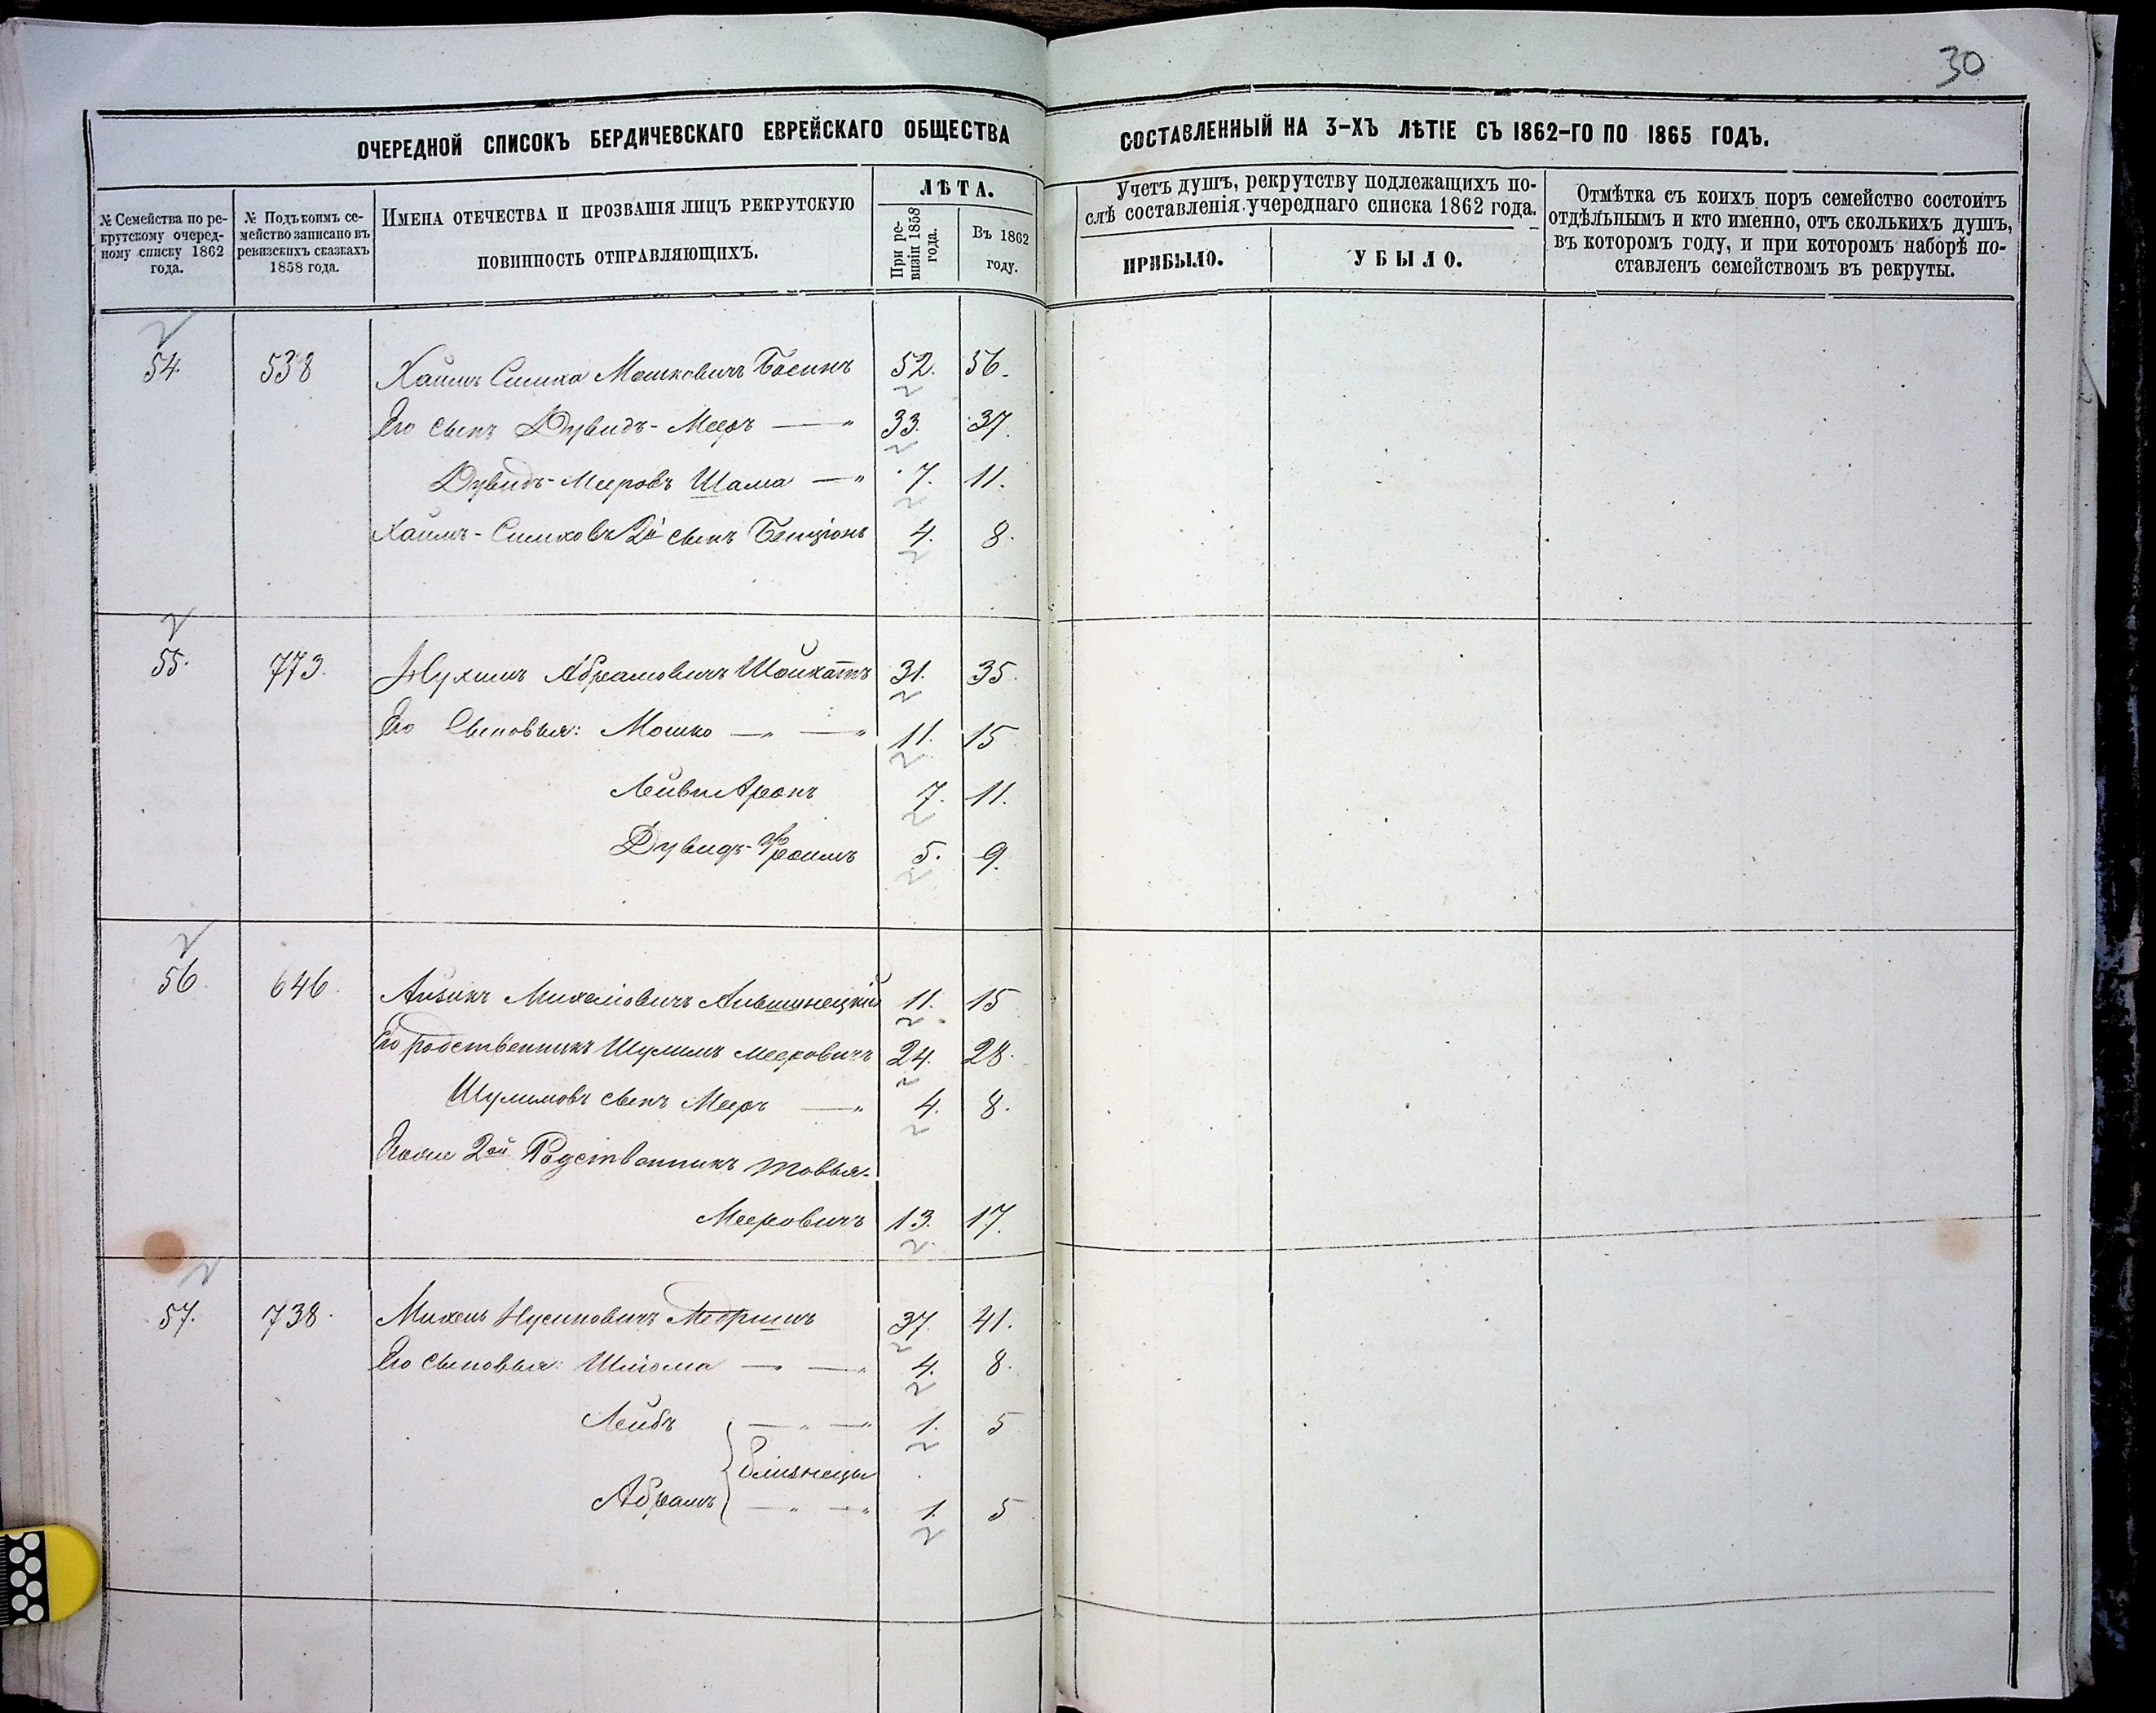 30
ОЧЕРЕДНОЙ СПИСОКЪ БЕРДИЧЕВСКАГО ЕВРЕЙСКАГО ОБЩЕСТВА СОСТАВЛЕННЫЙ НА 3-ХЪ ЛѢТІЕ СЪ 1862-ГО ПО 1865 ГОДЪ.
№ Семейства по ре-
крутскому очеред-
ному списку 1862
года.
№ Подъ коимъ се-
мейство записано въ
ревизскихъ сказкахъ
1858 года.
ИМЕНА ОТЕЧЕСТВА И ПРОЗВАНІЯ ЛИЦЪ РЕКРУТСКУЮ
ПОВИННОСТЬ ОТПРАВЛЯЮЩИХЪ.
ЛѢТА.
При ре-
визіи 1858
года.
Въ 1862
году.
Учетъ душъ, рекрутству подлежащихъ по-
слѣ составленія учереднаго списка 1862 года.
ПРИБЫЛО.
УБЫЛО.
Отмѣтка съ коихъ поръ семейство состоитъ
отдѣльнымъ и кто именно, отъ сколькихъ душъ,
въ которомъ году, и при которомъ наборѣ по-
ставленъ семействомъ въ рекруты.
54. 538 Хаимъ Симха Мошковичъ Басинъ 52. 56.
Его сынъ Дувидъ-Мееръ — " 33. 37.
Дувидъ-Мееровъ Шама — " 7. 11.
Хаимъ-Симховъ 2й сынъ Бенціонъ 4. 8.
55. 773. Нухимъ Абрамовичъ Шойхатъ 31. 35.
Его Сыновья: Мошко — " — " 11. 15
Лейви Аронъ 7. 11.
Дувидъ-Фроимъ 5. 9.
56. 646. Айзикъ Михелiовичъ 11. 15
Его родственникъ Шулимъ Мееровичъ 24. 28.
Шулимовъ сынъ Мееръ — " 4. 8.
2ой Родственникъ Товья-
Мееровичъ 13. 17.
57. 738. Михель Нусиновичъ 37. 41.
Его сыновья: Шлiома — — " 4. 8.
Лейбъ — " — " 1. 5
близнецы
Абрамъ — " — " 1. 5